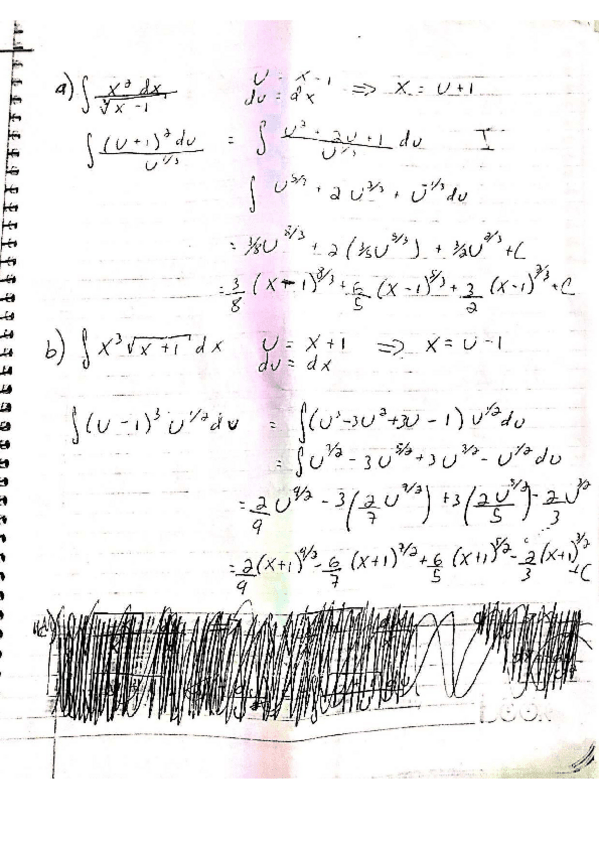 a) ∫ x² dx / ∛(x - 1)    u = x - 1    ⇒ x = u + 1
du = dx
∫ (u + 1)² du / u^(1/3) = ∫ (u² + 2u + 1) / u^(1/3) du    I
∫ u^(5/3) + 2u^(2/3) + u^(-1/3) du
= 3/8 u^(8/3) + 2(3/5 u^(5/3)) + 3/2 u^(2/3) + C
= 3/8 (x - 1)^(8/3) + 6/5 (x - 1)^(5/3) + 3/2 (x - 1)^(2/3) + C
b) ∫ x³ √(x + 1) dx    u = x + 1    ⇒ x = u - 1
du = dx
∫ (u - 1)³ u^(1/2) du = ∫ (u³ - 3u² + 3u - 1) u^(1/2) du
= ∫ u^(7/2) - 3u^(5/2) + 3u^(3/2) - u^(1/2) du
= 2/9 u^(9/2) - 3(2/7 u^(7/2)) + 3(2u^(5/2)/5) - 2/3 u^(3/2)
= 2/9 (x+1)^(9/2) - 6/7 (x+1)^(7/2) + 6/5 (x+1)^(5/2) - 2/3 (x+1)^(3/2) + C